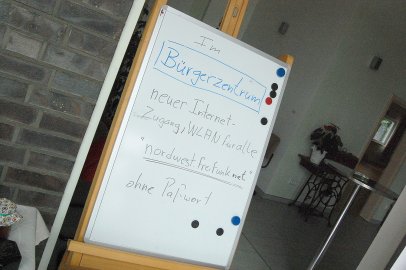 Im
Bürgerzentrum
neuer Internet-
Zugang, WLAN für alle
"nordwest freifunk net"
ohne Paßwort